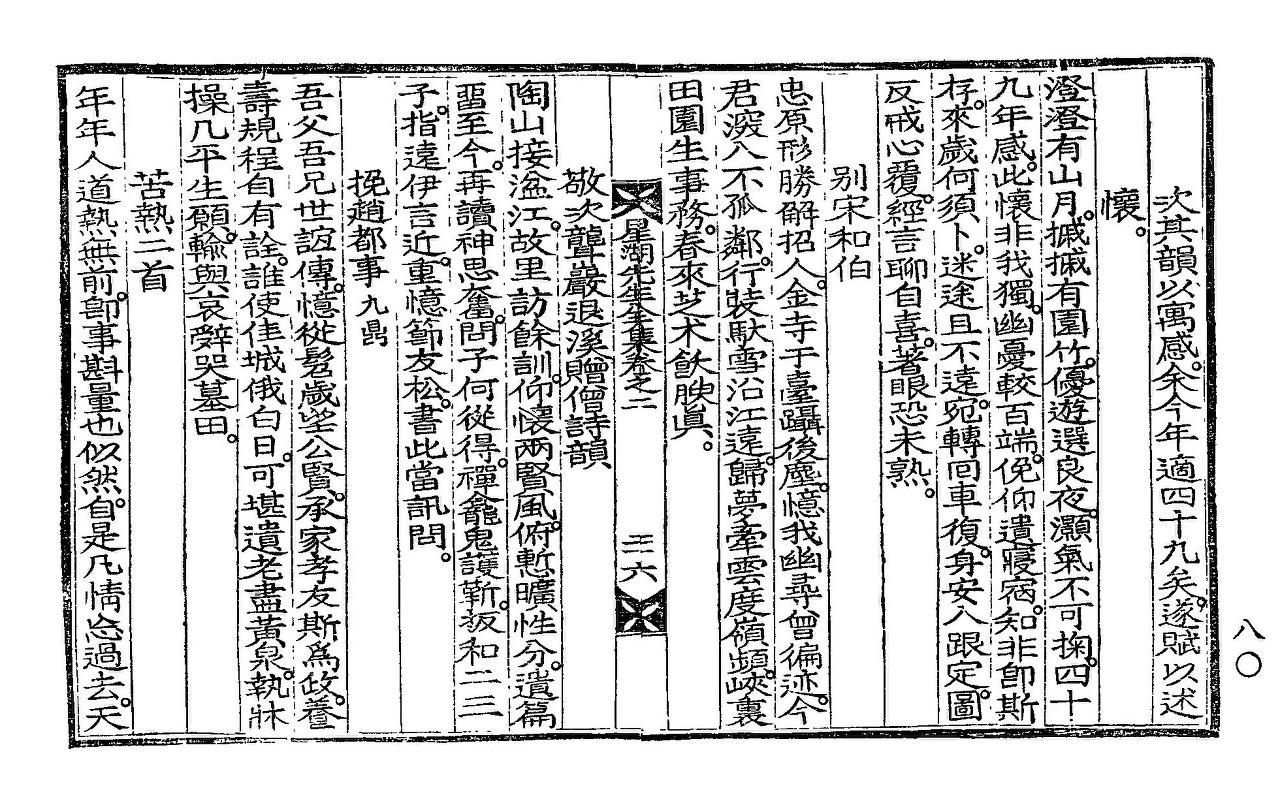 次其韻以寓感。余今年適四十九矣。遂賦以述
懷。
澄澄有山月。搣搣有園竹。優遊選良夜。灝氣不可掬。四十
九年感。此懷非我獨。幽憂較百端。俛仰遺寢宿。知非卽斯
存。來歲何須卜。迷途且不遠。宛轉回車復。身安入跟定。圖
反戒心覆。經言聊自喜。著眼恐未熟。
別宋和伯
忠原形勝解招人。金寺于臺躡後塵。憶我幽尋曾徧迹。今
君深入不孤鄰。行裝馱雪沿江遠。歸夢牽雲度嶺頻。峽裏
田園生事務。春來芝朮飫腴眞。
星湖先生全集卷之二
三六
敬次聾巖退溪贈僧詩韻
陶山接湓江。故里訪餘訓。仰懷兩賢風。俯慙曠性分。遺篇
留至今。再讀神思奮。問子何從得。禪龕鬼護靳。扳和二三
子。指遠伊言近。重憶節友松。書此當訊問。
挽趙都事 九鼎
吾父吾兄世誼傳。憶從髫歲坐公賢。承家孝友斯爲政。養
壽規程自有詮。誰使佳城俄白日。可堪遺老盡黃泉。執牀
操几平生願。輸與哀辭哭墓田。
苦熱二首
年年人道熱無前。卽事斟量也似然。自是凡情忘過去。天
八〇